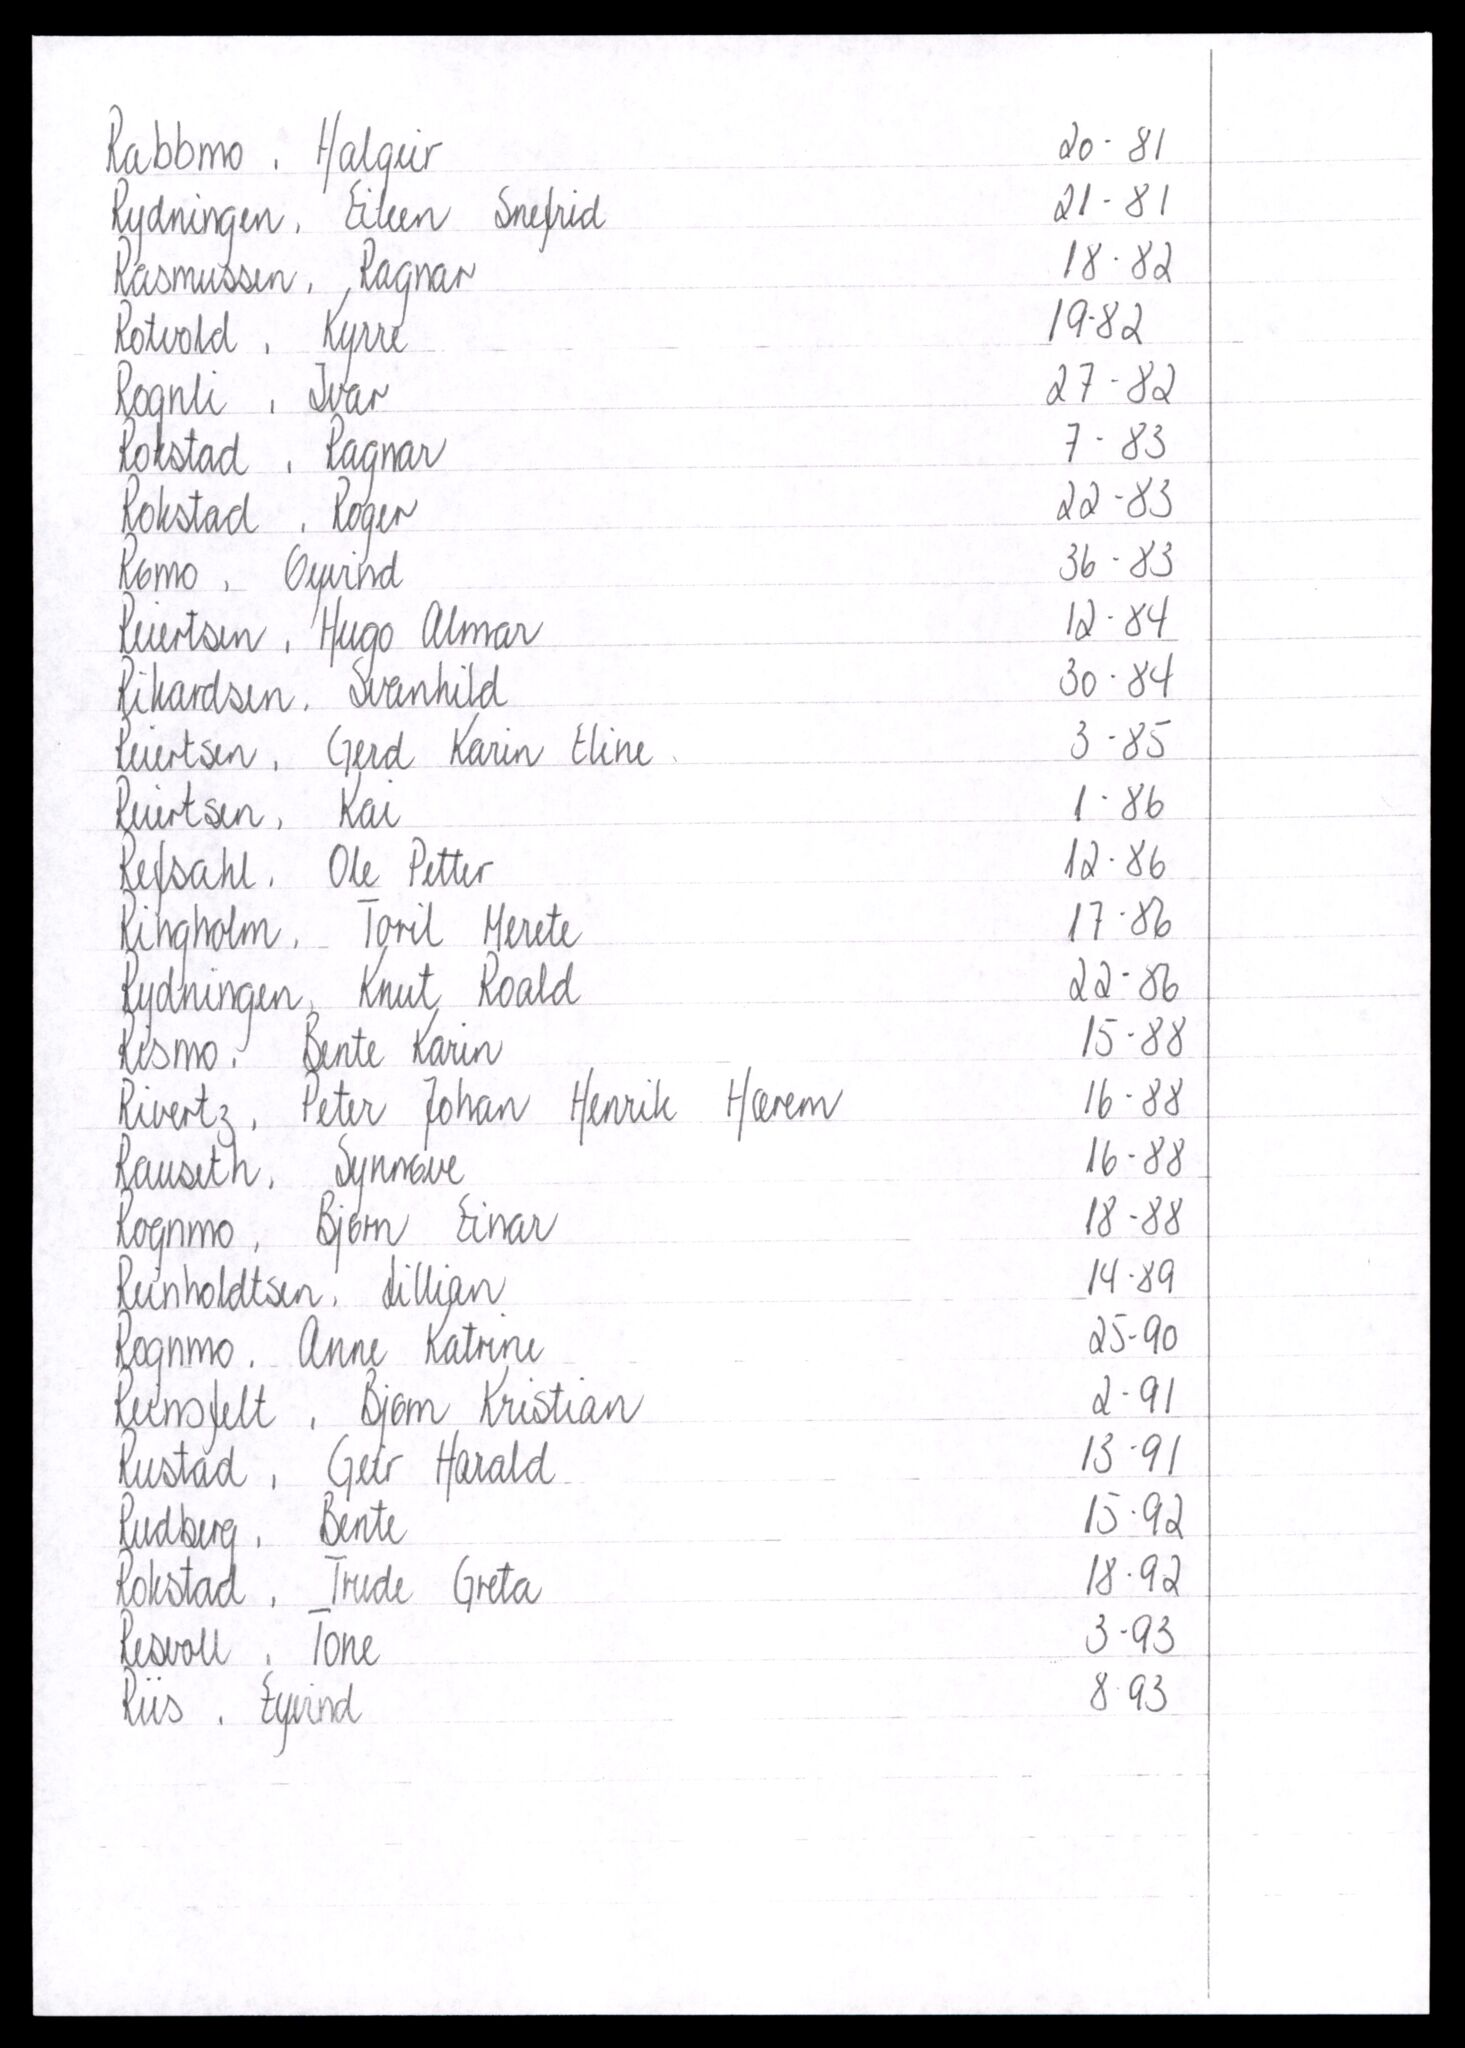 Rabbmo, Halgeir 20-81
Rydningen, Eileen Snefrid 21-81
Rasmussen, Ragnar 18-82
Rotvold, Kyrre 19-82
Rognli, Ivar 27-82
Rokstad, Ragnar 7-83
Rokstad, Roger 22-83
Rømo, Øyvind 36-83
Reiertsen, Hugo Almar 12-84
Rikardsen, Svanhild 30-84
Reiertsen, Gerd Karin Eline 3-85
Reiertsen, Kai 1-86
Refsahl, Ole Petter 12-86
Ringholm, Toril Merete 17-86
Rydningen, Knut Roald 22-86
Rismo, Bente Karin 15-88
Rivertz, Peter Johan Henrik Hærem 16-88
Rauseth, Synnøve 16-88
Rognmo, Bjørn Einar 18-88
Reinholdtsen, Lillian 14-89
Rognmo, Anne Katrine 25-90
Reinsfelt, Bjørn Kristian 2-91
Rustad, Geir Harald 13-91
Rudberg, Bente 15-92
Rokstad, Trude Greta 18-92
Resvoll, Tone 3-93
Riis, Eyvind 8-93